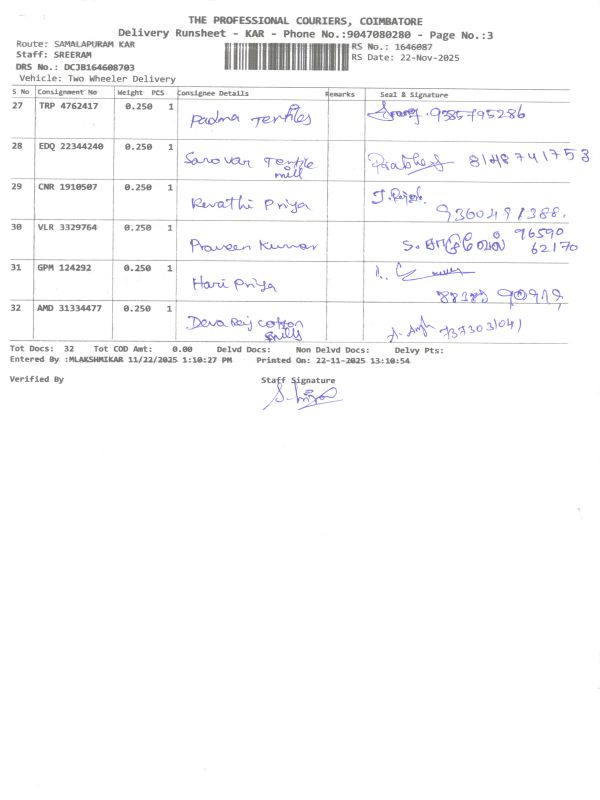 THE PROFESSIONAL COURIERS, COIMBATORE
Delivery Runsheet - KAR - Phone No.:9047080280 - Page No.:3
Route: SAMALAPURAM KAR
RS No.: 1646087
Staff: SREERAM
RS Date: 22-Nov-2025
DRS No.: DCJB164608703
Vehicle: Two Wheeler Delivery
S No Consignment No Weight PCS Consignee Details Remarks Seal & Signature
27 TRP 4762417 0.250 1 Padma Textiles 9385795286
28 EDQ 22344240 0.250 1 Sarovar Textile mill Prabhu 8148741753
29 CNR 1910507 0.250 1 Revathi Priya J. Rajesh
30 VLR 3329764 0.250 1 Praveen Kumar 96590 62170
31 GPM 124292 0.250 1 Hari Priya
32 AMD 31334477 0.250 1 Deva Raj cotton mills 7373031041
Tot Docs: 32 Tot COD Amt: 0.00 Delvd Docs: Non Delvd Docs: Delvy Pts:
Entered By :MLAKSHMIKAR 11/22/2025 1:10:27 PM Printed On: 22-11-2025 13:10:54
Verified By
Staff Signature